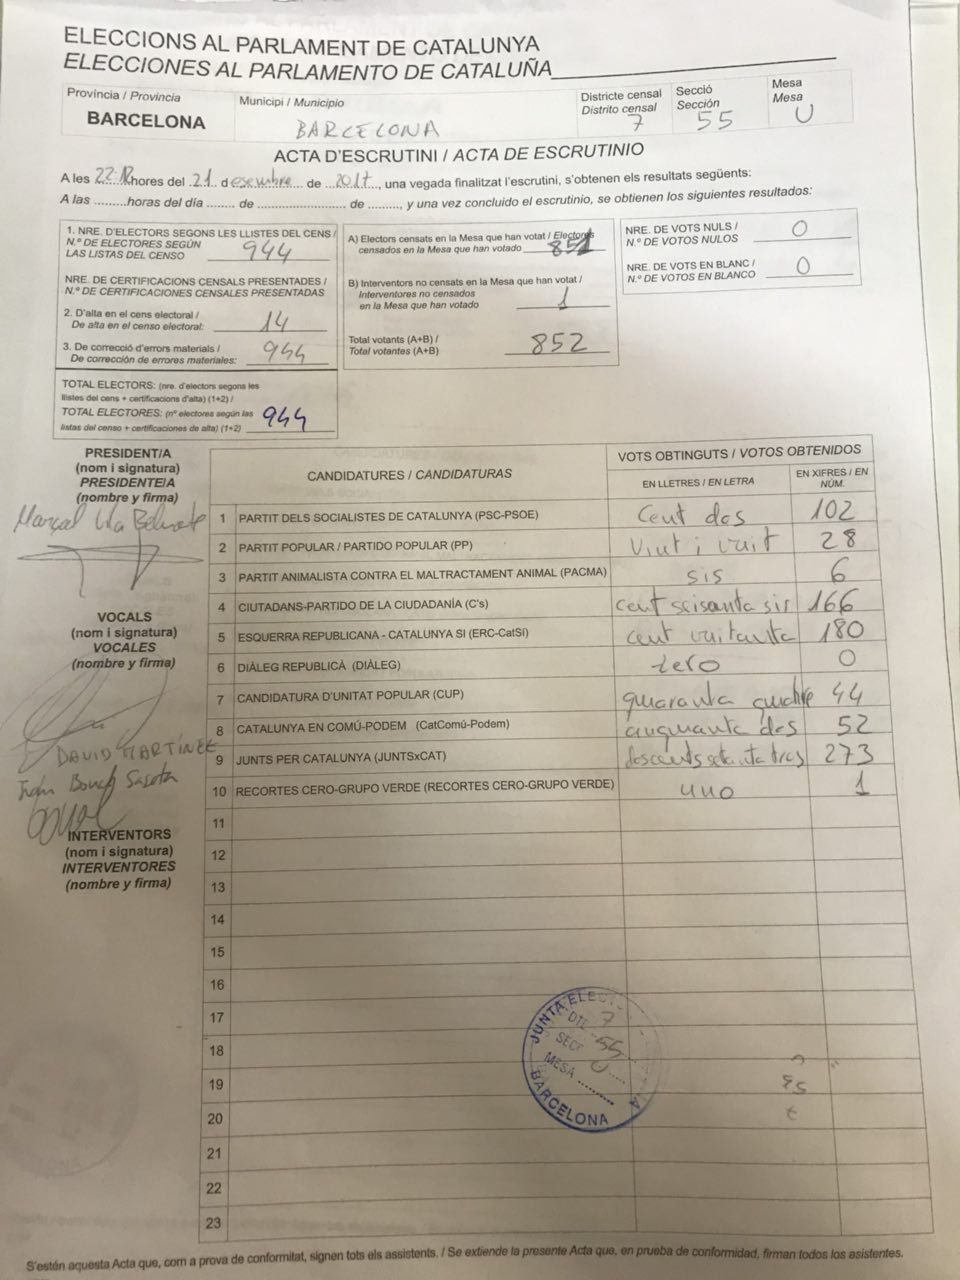 ELECCIONS AL PARLAMENT DE CATALUNYA
ELECCIONES AL PARLAMENTO DE CATALUÑA
Província / Provincia
BARCELONA
Municipi / Municipio
BARCELONA
Districte censal
Distrito censal
7
Secció
Sección
55
Mesa
Mesa
U
ACTA D'ESCRUTINI / ACTA DE ESCRUTINIO
A les 22:12 hores del 21 desembre de 2017, una vegada finalitzat l'escrutini, s'obtenen els resultats següents:
A las .........horas del día ........ de ........................ de ........., y una vez concluido el escrutinio, se obtienen los siguientes resultados:
1. NRE. D'ELECTORS SEGONS LES LLISTES DEL CENS /
N.º DE ELECTORES SEGÚN
LAS LISTAS DEL CENSO 944
NRE. DE CERTIFICACIONS CENSALS PRESENTADES /
N.º DE CERTIFICACIONES CENSALES PRESENTADAS
2. D'alta en el cens electoral /
De alta en el censo electoral: 14
3. De correcció d'errors materials /
De corrección de errores materiales: 944
TOTAL ELECTORS: (nre. d'electors segons les
llistes del cens + certificacions d'alta) (1+2) /
TOTAL ELECTORES: (nº electores según las
listas del censo + certificaciones de alta) (1+2) 944
A) Electors censats en la Mesa que han votat / Electores
censados en la Mesa que han votado 851
B) Interventors no censats en la Mesa que han votat /
Interventores no censados
en la Mesa que han votado 1
Total votants (A+B) /
Total votantes (A+B) 852
NRE. DE VOTS NULS /
N.º DE VOTOS NULOS 0
NRE. DE VOTS EN BLANC /
N.º DE VOTOS EN BLANCO 0
PRESIDENT/A
(nom i signatura)
PRESIDENTE/A
(nombre y firma)
Marçal
VOCALS
(nom i signatura)
VOCALES
(nombre y firma)
DAVID MARTÍNEZ
INTERVENTORS
(nom i signatura)
INTERVENTORES
(nombre y firma)
CANDIDATURES / CANDIDATURAS
VOTS OBTINGUTS / VOTOS OBTENIDOS
EN LLETRES / EN LETRA
EN XIFRES / EN NÚM.
1 PARTIT DELS SOCIALISTES DE CATALUNYA (PSC-PSOE) Cent dos 102
2 PARTIT POPULAR / PARTIDO POPULAR (PP) Vint i vuit 28
3 PARTIT ANIMALISTA CONTRA EL MALTRACTAMENT ANIMAL (PACMA) sis 6
4 CIUTADANS-PARTIDO DE LA CIUDADANÍA (C's) cent seisanta sis 166
5 ESQUERRA REPUBLICANA - CATALUNYA SI (ERC-CatSí) cent vuitanta 180
6 DIÀLEG REPUBLICÀ (DIÀLEG) zero 0
7 CANDIDATURA D'UNITAT POPULAR (CUP) quaranta quatre 44
8 CATALUNYA EN COMÚ-PODEM (CatComú-Podem) cinquanta dos 52
9 JUNTS PER CATALUNYA (JUNTSxCAT) doscents setanta tres 273
10 RECORTES CERO-GRUPO VERDE (RECORTES CERO-GRUPO VERDE) uno 1
11
12
13
14
15
16
17
18
19
20
21
22
23
JUNTA ELEC
DTE 7
SECC 55
MESA U
BARCELONA
S'estén aquesta Acta que, com a prova de conformitat, signen tots els assistents. / Se extiende la presente Acta que, en prueba de conformidad, firman todos los asistentes.